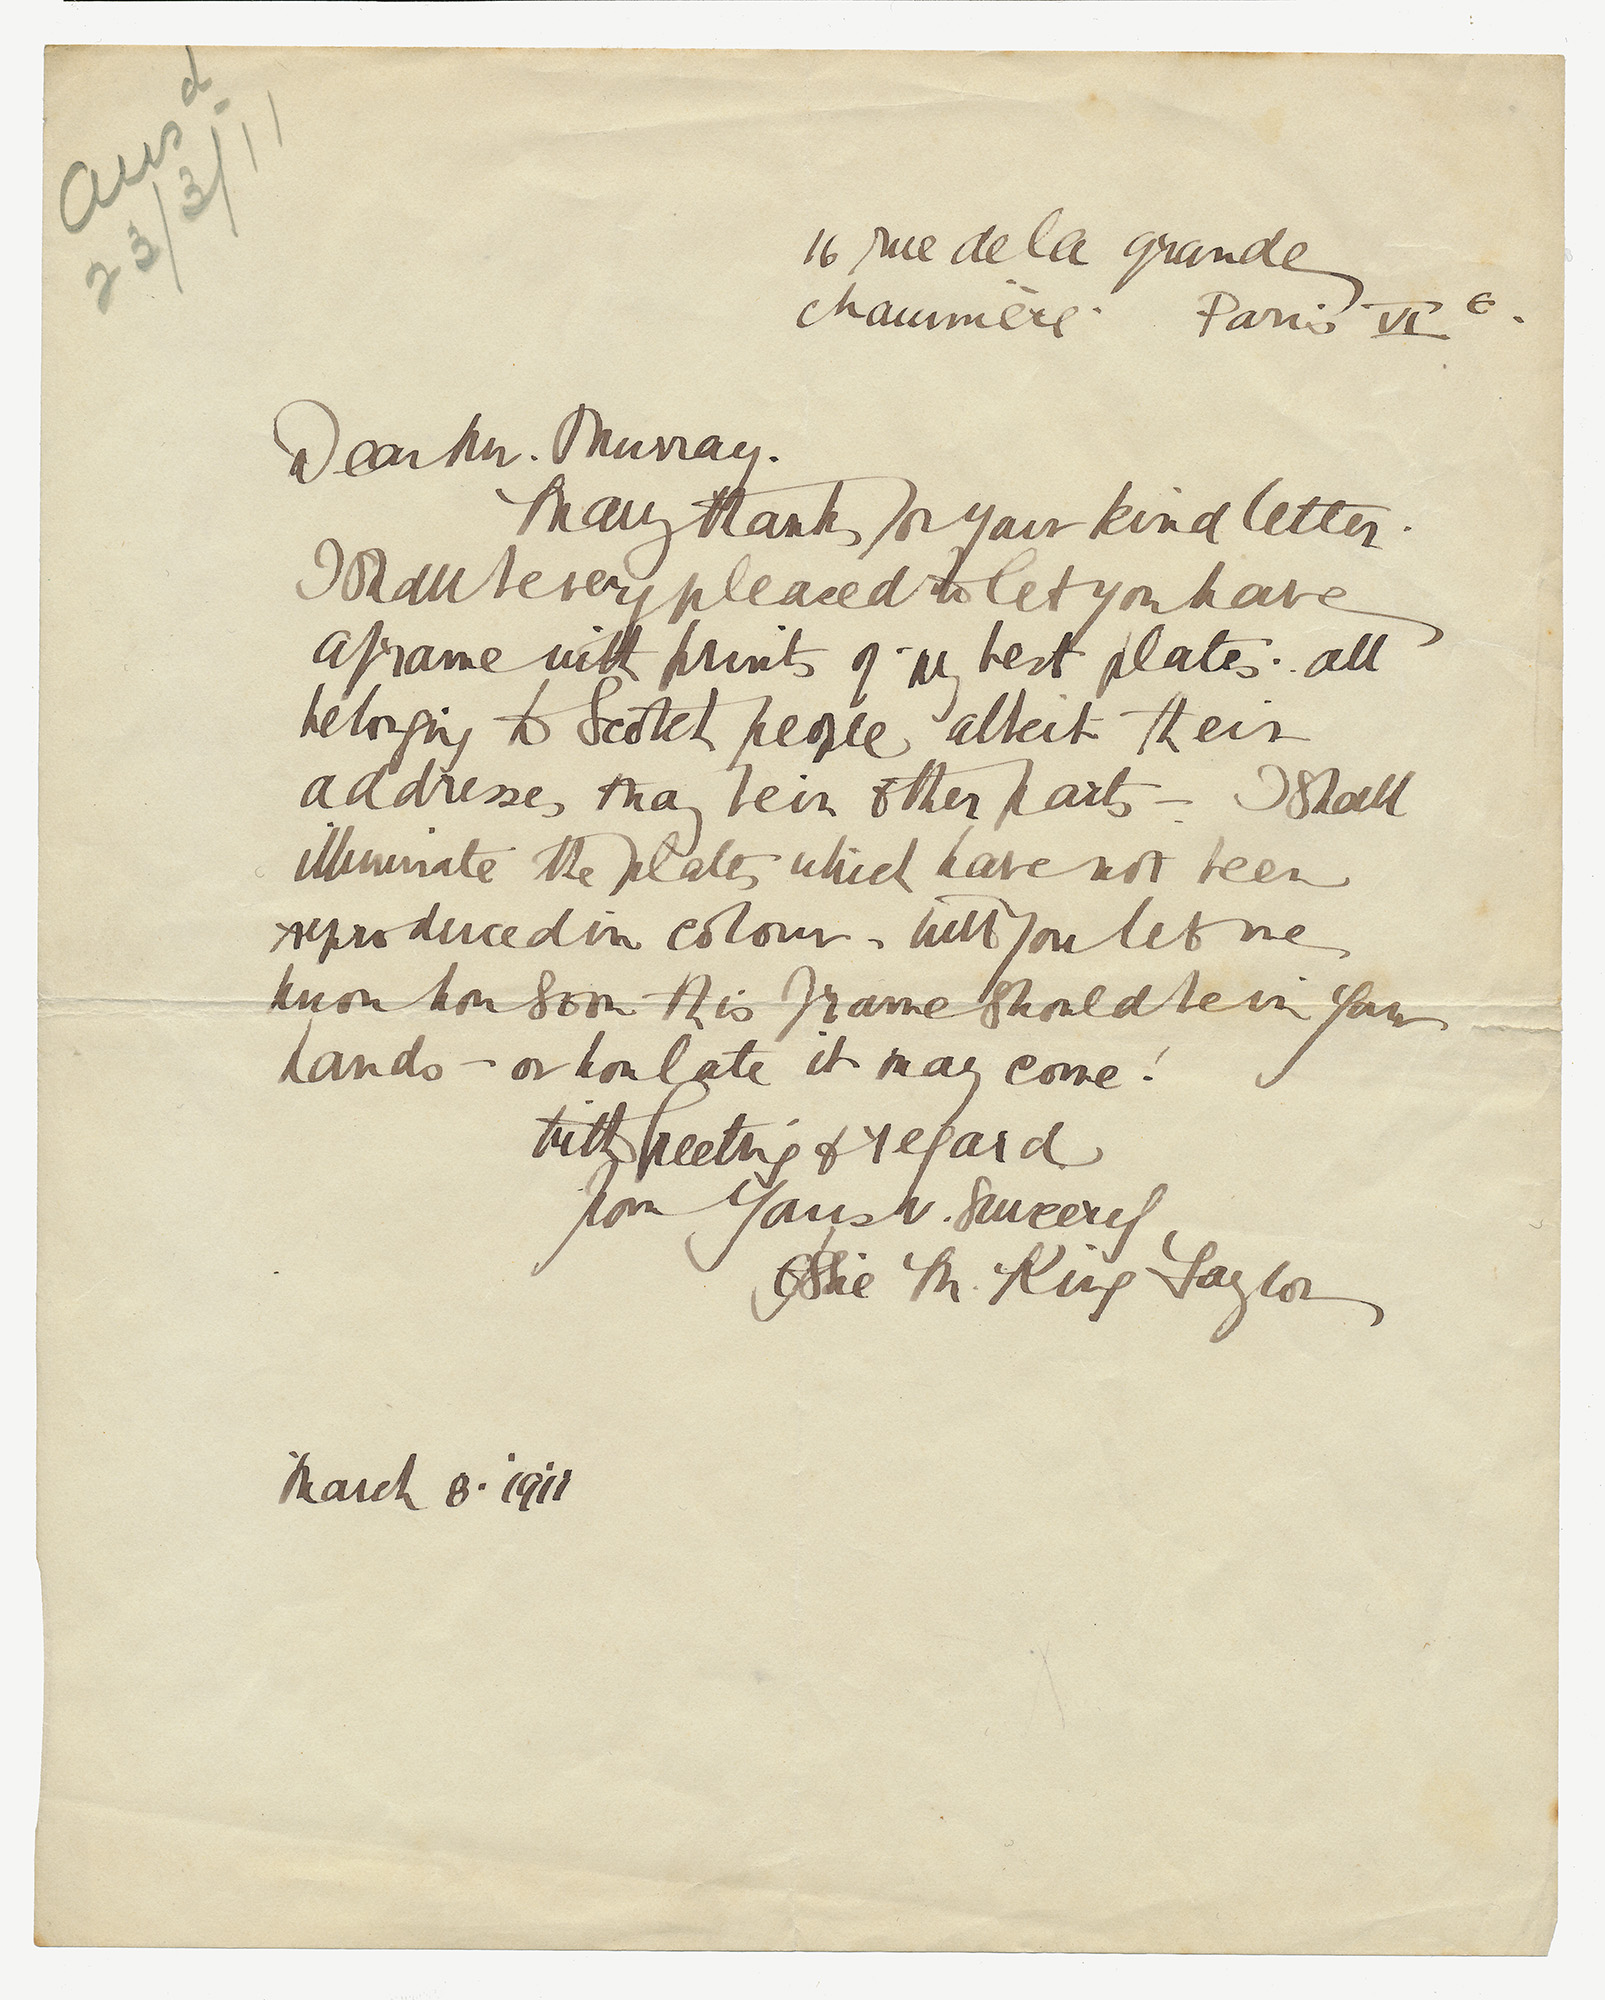 Ansd.
23/3/11
16 rue de la grande
chaumière. Paris VI e.
Dear Mr. Murray.
Many thanks for your kind letter.
I shall be very pleased to let you have
a frame with prints of my best plates. all
belonging to Scotch people, albeit their
addresses may be in other parts - I shall
illuminate the plates which have not been
reproduced in colour. Will you let me
know how soon this frame should be in your
hands - or how late it may come!
With greeting & regard
from Yours v. Sincerely,
Jessie M. King Taylor
March 8. 1911